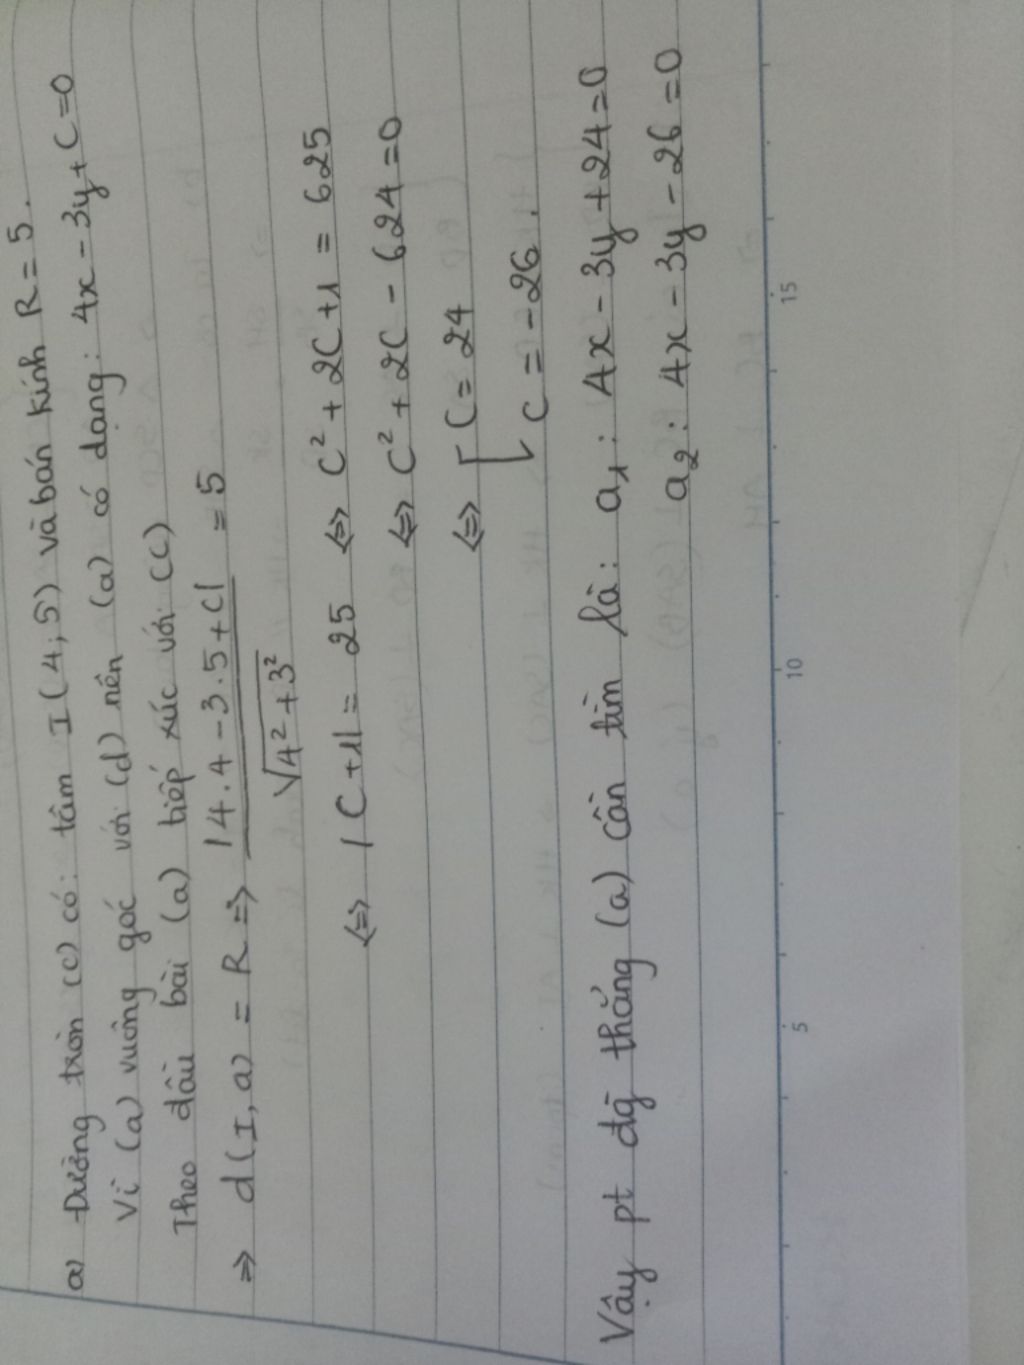 a) Đường tròn (C) có: tâm I(4;5) và bán kính R=5.
Vì (a) vuông góc với (d) nên (a) có dạng: 4x-3y+C=0
Theo đầu bài (a) tiếp xúc với (C)
=> d(I,a) = R => |4.4-3.5+C| / √4²+3² = 5
<=> |C+1| = 25 <=> C²+2C+1 = 625
<=> C²+2C-624=0
<=> [C=24
C=-26.
Vậy pt đg thẳng (a) cần tìm là: a₁: 4x-3y+24=0
a₂: 4x-3y-26=0
5 10 15